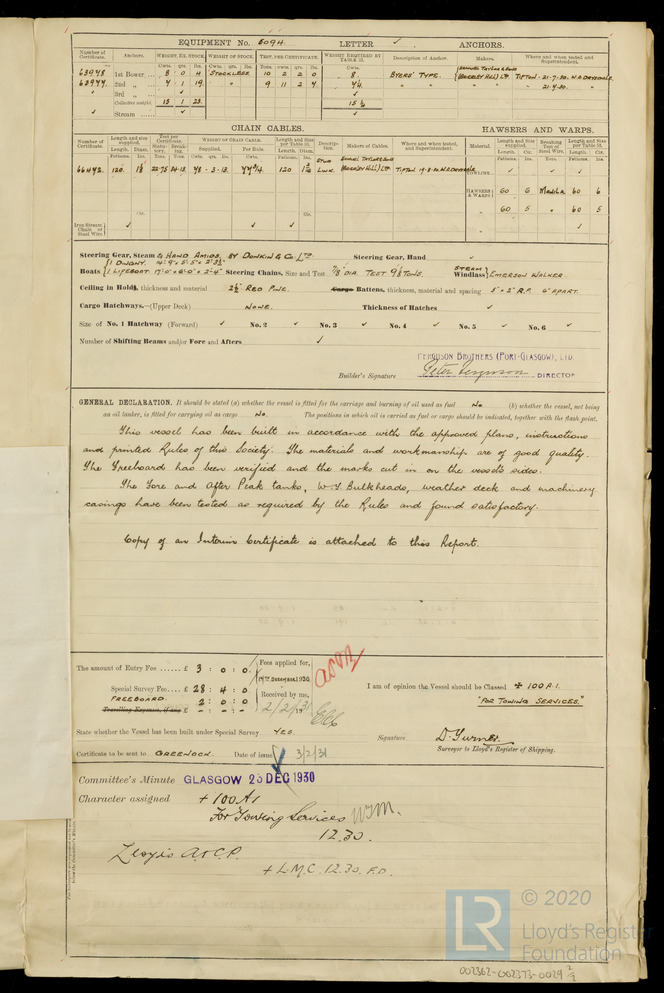 EQUIPMENT No. 6094. LETTER ✓ ANCHORS.
Number of Certificate. Anchors. WEIGHT, EX. STOCK. WEIGHT OF STOCK. TEST, PER CERTIFICATE. WEIGHT REQUIRED BY TABLE 31. Description of Anchor. Makers. Where and when tested and Superintendent.
Cwts. qrs. lbs. Cwts. qrs. lbs. Tons. cwts. qrs. lbs. Cwts.
63978 1st Bower ... 8 0 4 STOCKLESS 10 2 2 0 8. BYERS' TYPE. (HINGLEY HILL) LTD TIPTON. 21.7.30. 
63977. 2nd " ... 7 1 19 " 9 11 2 7
3rd "
Collective weight. 15 1 23. 15½
✓ Stream ... ✓
CHAIN CABLES. HAWSERS AND WARPS.
Number of Certificate. Length and size supplied. Test per Certificate. WEIGHT OF CHAIN CABLE. Length and Size per Table 31. Description. Makers of Cables. Where and when tested, and Superintendent. Material. Length and Size supplied. Breaking Test of Steel Wire. Length and Size per Table 31.
Length. Diam. Statutory. Breaking. Supplied. Per Rule. Length. Diam. Length. Cir. Length. Cir.
Fathoms. Ins. Tons. Tons. Cwts. qrs. lbs. Cwts. Fathoms. Ins. Fathoms. Ins. Tons. Fathoms. Ins.
66442. 120. 120 STUD LINK. TIPTON
HAWSERS & WARPS 60 6 Manila 60 6
" 60 5 " 60 5
Iron Stream Chain or Steel Wire ✓ ✓ ✓
Steering Gear, Steam & HAND AMIDS. BY DONKIN & Co LTD Steering Gear, Hand ✓
Boats { 1 DINGHY.
1 LIFEBOAT. 17'·0" × 6'·0" × 2'·4" Steering Chains, Size and Test 7/8 DIA. TEST 9⅛ TONS. STEAM Windlass} EMERSON WALKER.
Ceiling in Holds, thickness and material 2½" RED PINE. Cargo Battens, thickness, material and spacing 5" × 2" R.P. 6" APART.
Cargo Hatchways.—(Upper Deck) NONE. Thickness of Hatches ✓
Size of No. 1 Hatchway (Forward) ✓ No. 2 ✓ No. 3 ✓ No. 4 ✓ No. 5 ✓ No. 6 ✓
Number of Shifting Beams and/or Fore and Afters ✓
FERGUSON BROTHERS (PORT-GLASGOW), LTD.
Builder's Signature Peter Ferguson DIRECTOR
GENERAL DECLARATION. It should be stated (a) whether the vessel is fitted for the carriage and burning of oil used as fuel No (b) whether the vessel, not being
an oil tanker, is fitted for carrying oil as cargo No. The positions in which oil is carried as fuel or cargo should be indicated, together with the flash point.
This vessel has been built in accordance with the approved plans, instructions
and printed Rules of this Society. The materials and workmanship are of good quality.
The Freeboard has been verified and the marks cut in on the vessel's sides.
The Fore and After Peak tanks, W.T. Bulkheads, weather deck and machinery
casings have been tested as required by the Rules and found satisfactory.
Copy of an Interim Certificate is attached to this Report.
The amount of Entry Fee ...... £ 3 : 0 : 0. Fees applied for,
19TH DECEMBER 1930
Special Survey Fee .... £ 28 : 4 : 0 Received by me,
FREEBOARD 2 : 0 : 0
Travelling Expenses, if any £ - : - : - 2/2/31
I am of opinion the Vessel should be Classed ✠ 100A1.
"FOR TOWING SERVICES."
State whether the Vessel has been built under Special Survey YES.
Signature D. Turner.
Surveyor to Lloyd's Register of Shipping.
Certificate to be sent to GREENOCK. Date of issue 3/2/31
Committee's Minute GLASGOW 23 DEC 1930
Character assigned + 100A1
For Towing Services
12.30.
Lloyd's A & C.P.
+ L.M.C. 12.30. F.D.
LR © 2020
Lloyd's Register
Foundation
002362-002373-0029 2/2